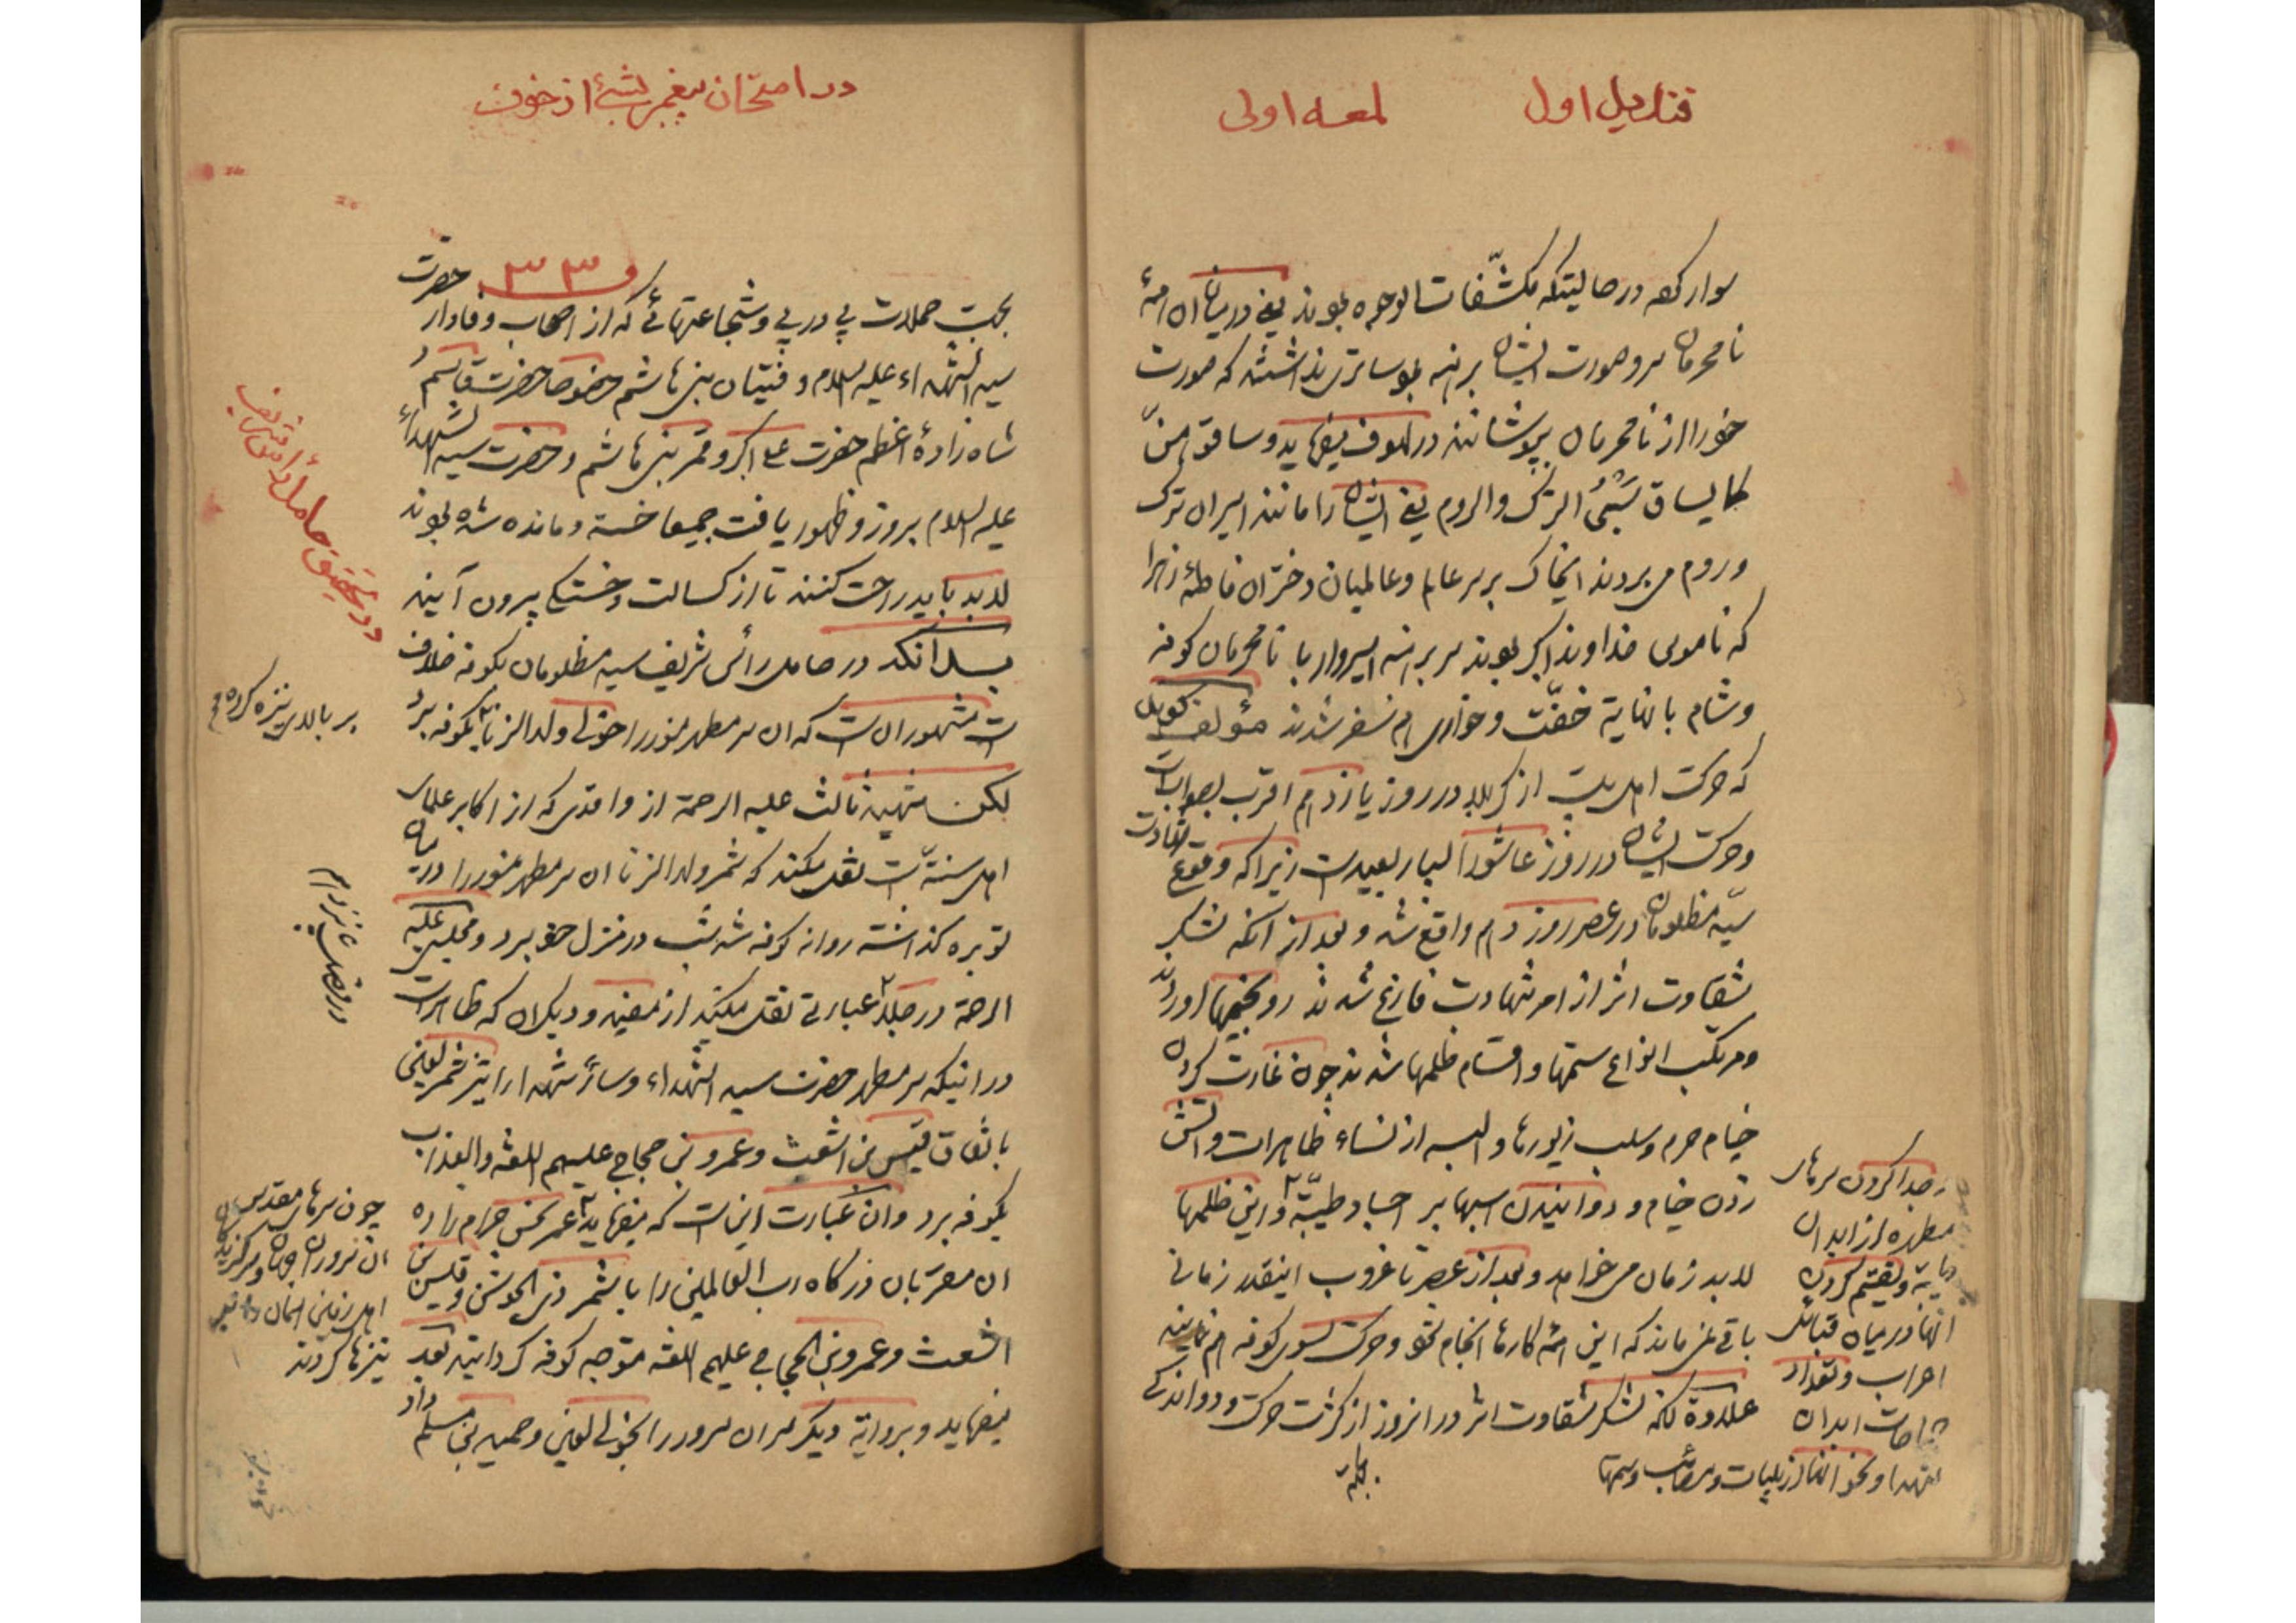 قندیل اول لمعه اولی
سوار کرده در حالیتکه مکشّفات الوجوه بودند یعنی در میان همه
نامحرمان سر و صورت ایشان برهنه بود ساتری نداشتند که صورت
خود را از نامحرمان بپوشانند در لهوف میفرماید و ساقوهنّ
کما یساق سَبْیُ الترک والروم یعنی ایشان را مانند اسیران ترک
و روم می بردند ای خاک بر سر عالم و عالمیان دختران فاطمهٔ زهرا
که ناموس خداوند اکبر بودند سر برهنه اسیروار با نامحرمان کوفه
و شام با نهایة خفّت و خواری هم سفر شدند مؤلف گوید
که حرکت اهل بیت از کربلا در روز یازدهم اقرب بصوابست
و حرکت ایشان در روز عاشورا بسیار بعید است زیرا که وقوع شهادت
سیّد مظلومان در عصر روز دهم واقع شد و بعد از آنکه لشکر
شقاوت اثر از امر شهادت فارغ شدند رو بخیمها اوردند
و مرتکب انواع ستمها و اقسام ظلمها شدند چون غارت کردن
خیام حرم و سلب زیورها و البسه از نساء طاهرات و اتش
زدن خیام و دوانیدن اسبها بر اجساد طیّبه و این ظلمها
لابد زمان میخواهد و بعد از عصر تا غروب اینقدر زمانی
باقی نمی ماند که این همه کارها انجام شود و حرکت بسوی کوفه هم نمایند
علاوة بلکه لشکر شقاوت اثر در انروز از کثرت حرکت و دوندگی
بجهة
و جدا کردن سرهای
مطهره از ابدان
و تقسیم کردن
انها در میان قبائل
احزاب و تعداد
جراحات ابدان
شهدا و نحو انها از بلیات و مصائب و ستمها
در امتحان پیغمبر بشیئ از خون
۳۳
بجهت حملات پی در پی و شجاعتهائی که از اصحاب وفادار حضرت
سید الشهداء علیه السلام و فتیان بنی هاشم خصوصا حضرت قاسم و
شاه زادهٔ اعظم حضرت علی اکبر و قمر بنی هاشم و حضرت سید الشهداء
علیه السلام بروز و ظهور یافت جمیعا خسته و مانده شده بودند
لابد باید راحت کنند تا از کسالت و خستگی بیرون آیند
بدانکه در حامل رأس شریف سید مظلومان بکوفه خلاف
است مشهور ان است که ان سر مطهر منور را خولی ولد الزنا بکوفه برد
لکن شهید ثالث علیه الرحمة از واقدی که از اکابر علمای
اهل سنّت است نقل میکند که شمر ولد الزنا ان سر مطهر منور را در میان
توبره گذاشته روانه کوفه شد شب در منزل خود برد و مجلسی علیه
الرحمة در جلاء عبارتی نقل میکند از مفید و دیگران که ظاهر است
در اینکه سر مطهر حضرت سید الشهداء و سائر شهدا را نیز شمر لعین
باتفاق قیس بن اشعث و عمرو بن حجاج علیهم اللعنة والعذاب
بکوفه برد و ان عبارت این است که میفرماید عمر نحس حرام زاده
ان مقربان درگاه رب العالمین را با شمر ذی الجوشن و قیس بن
اشعث و عمرو بن الحجاج علیهم اللعنه متوجه کوفه گردانید بعد
میفرماید و بروایة دیگر سر ان سرور را بخولی لعین و حمید بن مسلم داد
در تحقیق حامل رأس شریف
بر بالای نیزه کرده
در وقت شانزدهم
چون سرهای مقدس
ان سروران جهان و سرکردگان
اهل زمین اسمان را
نیزها کردند